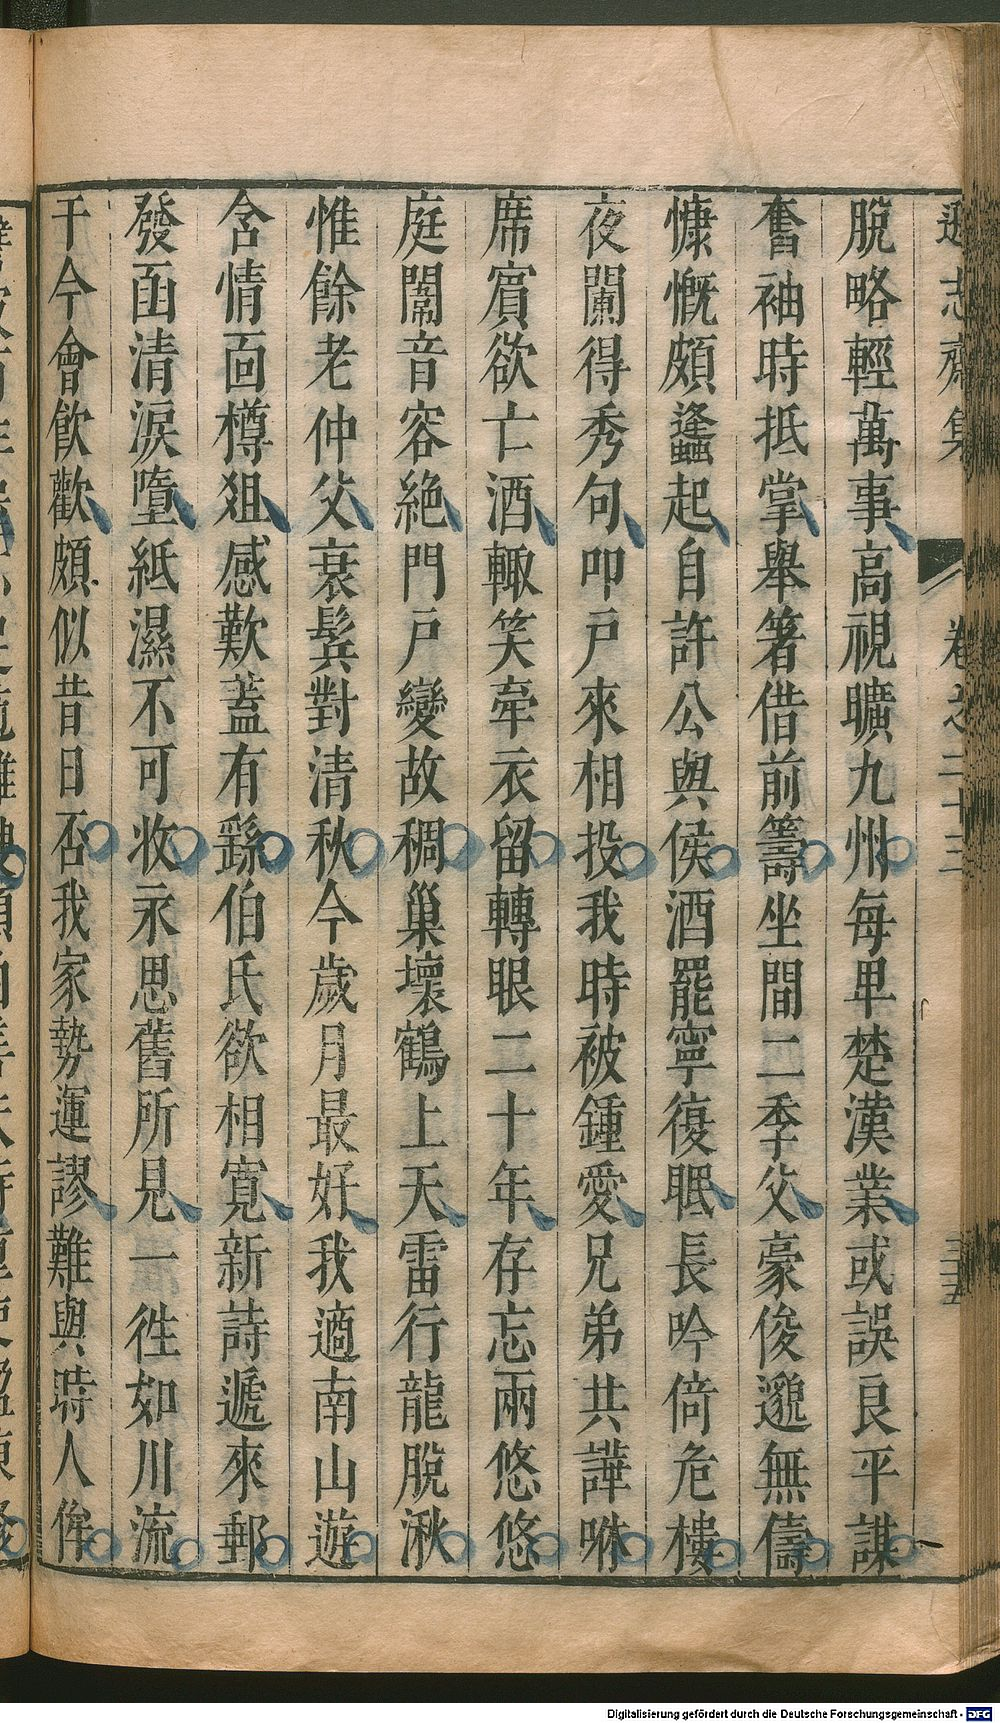 遜志齋集 卷之二十三 三五
脫略輕萬事高視曠九州每卑楚漢業或誤良平謀
奮袖時抵掌舉箸借前籌坐間二季父豪俊邈無儔
慷慨頗蠭起自許公與侯酒罷寧復眠長吟倚危樓
夜闌得秀句叩戶來相投我時被鍾愛兄弟共譁咻
席賓欲亡酒輙笑牽衣留轉眼二十年存忘兩悠悠
庭闈音容絶門戶變故稠巢壞鶴上天雷行龍脫湫
惟餘老仲父衰髩對清秋今歲月最好我適南山遊
含情面樽俎感歎蓋有繇伯氏欲相寬新詩遞來郵
發函清淚墮紙濕不可收永思舊所見一徃如川流
于今會飲歡頗似昔日否我家勢運謬難與時人侔
Digitalisierung gefördert durch die Deutsche Forschungsgemeinschaft - DFG